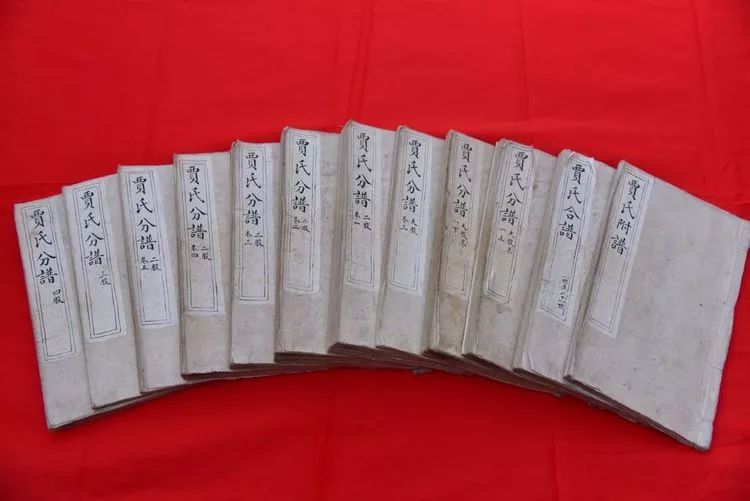 賈氏附譜
賈氏合譜
賈氏分譜 大股卷一上
賈氏分譜 大股卷一下
賈氏分譜 大股卷
賈氏分譜 二股卷一
賈氏分譜 二股卷二
賈氏分譜 二股卷三
賈氏分譜 二股卷四
賈氏分譜 二股卷五
賈氏分譜 三股
賈氏分譜 四股